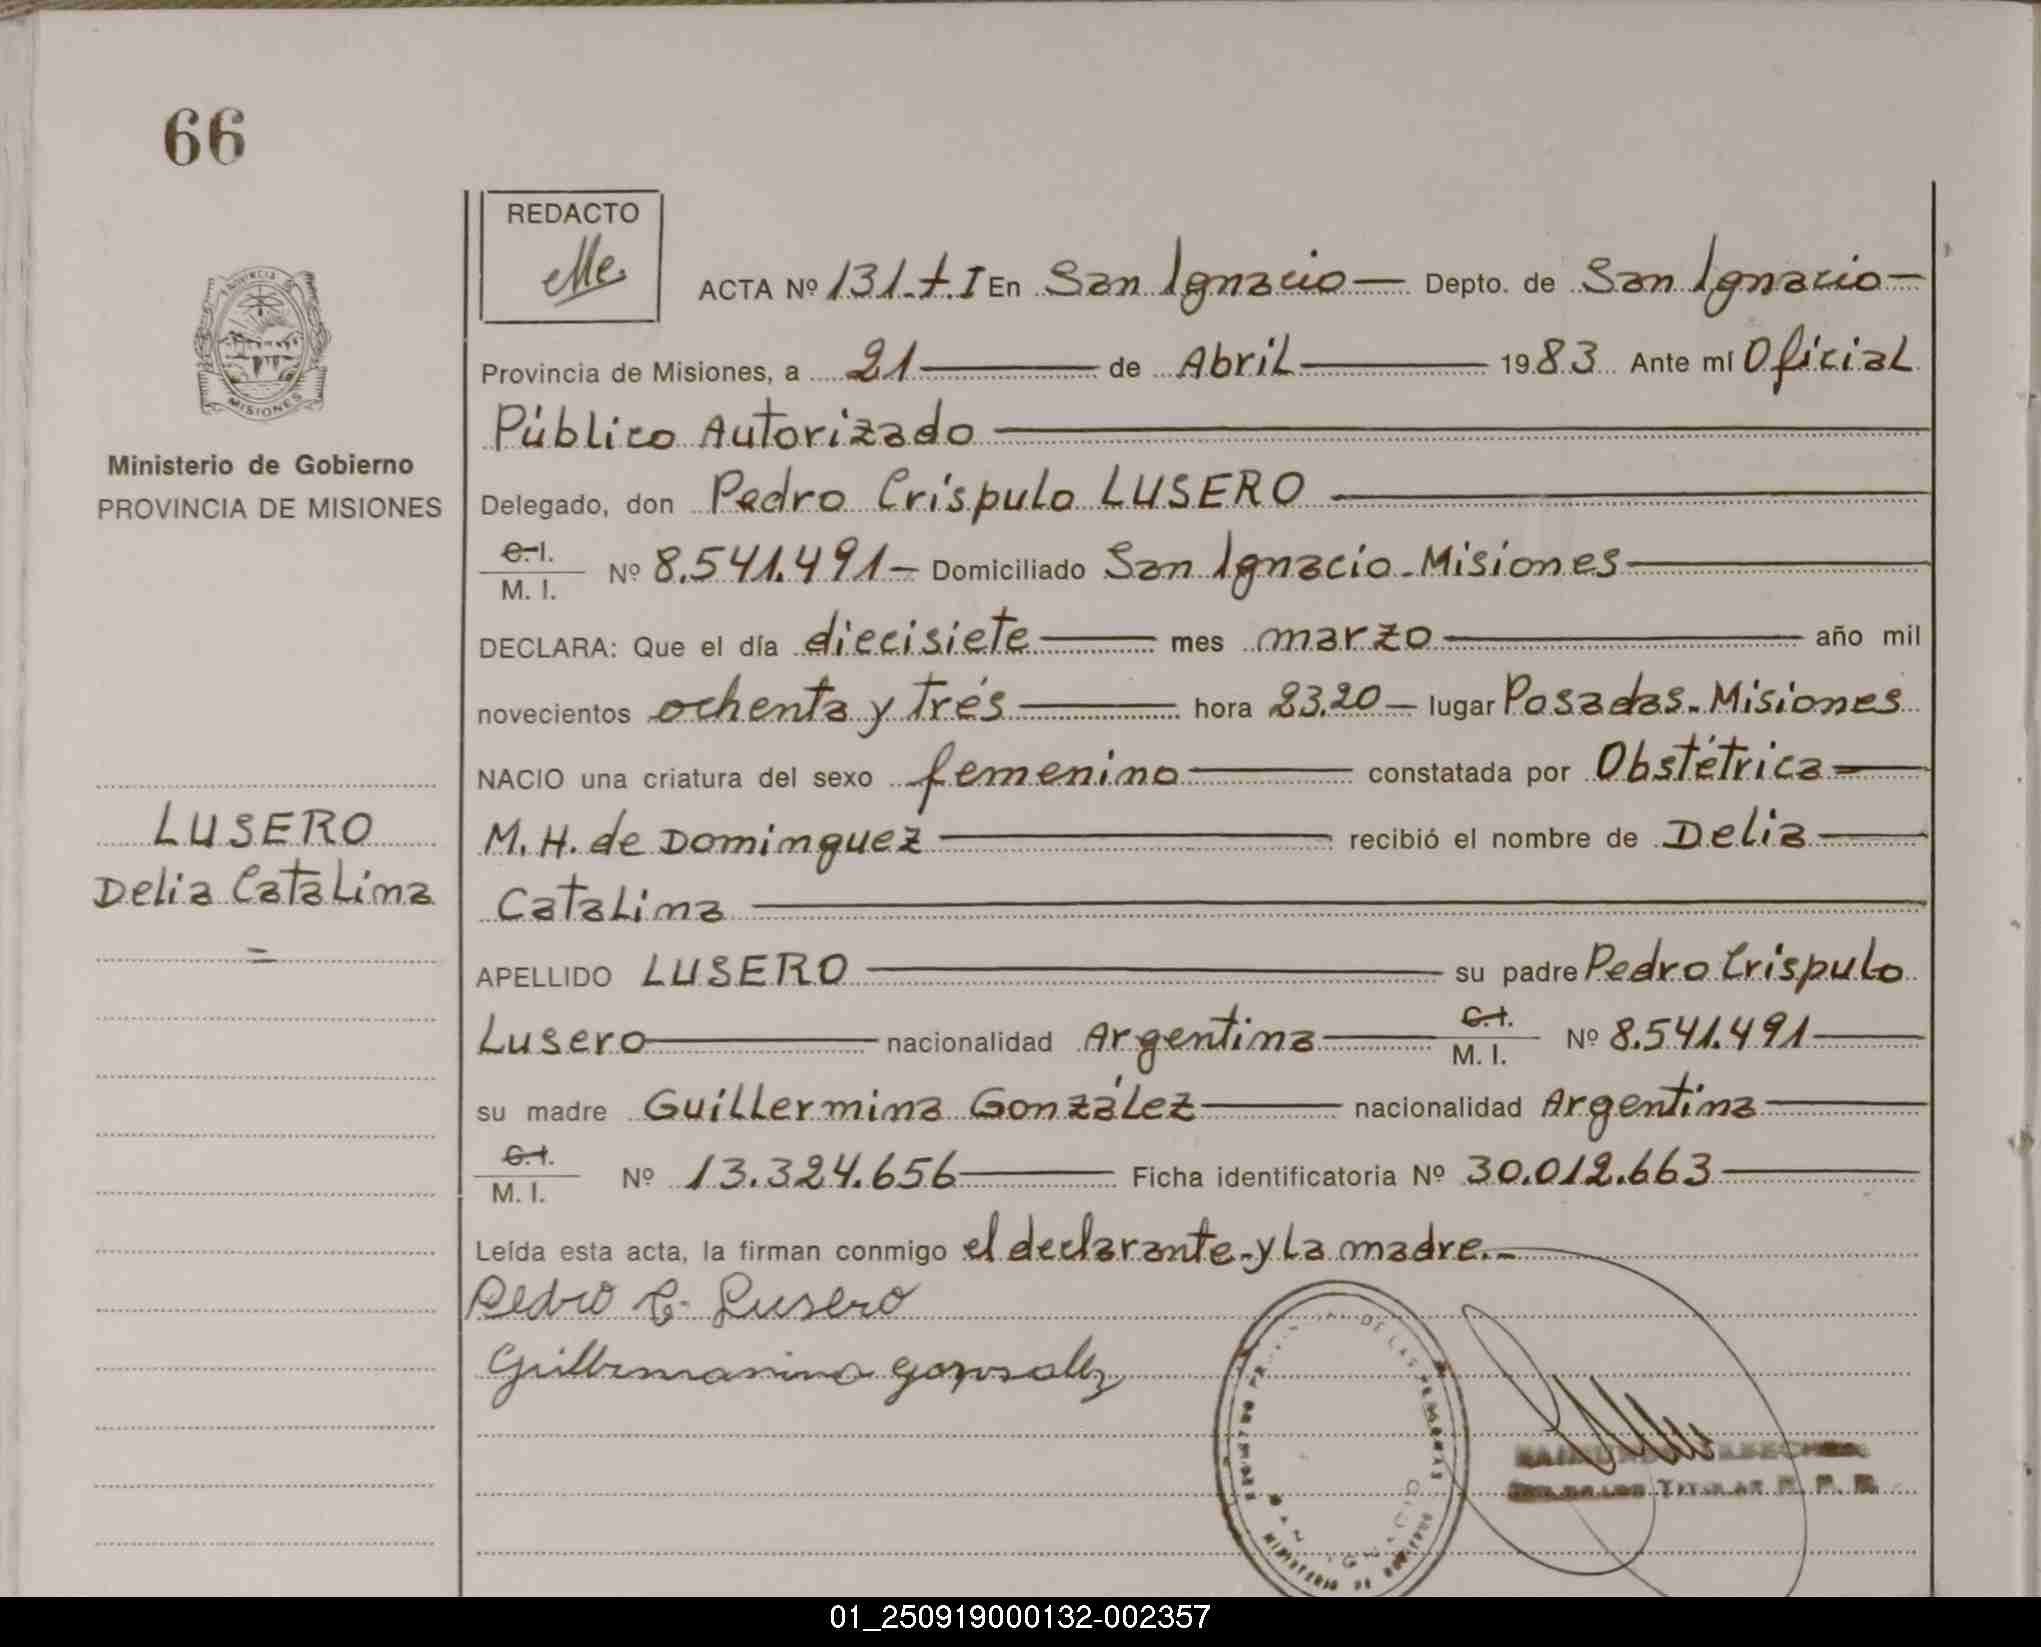 66
REDACTO
ACTA Nº 131.t.I En San Ignacio — Depto. de San Ignacio —
Provincia de Misiones, a 21 — de Abril — 1983 Ante mí Oficial
Público Autorizado —
Delegado, don Pedro Críspulo LUSERO —
C.I.
M. I. Nº 8.541.491 — Domiciliado San Ignacio - Misiones —
DECLARA: Que el día diecisiete — mes marzo — año mil
novecientos ochenta y trés — hora 23.20 — lugar Posadas - Misiones
NACIO una criatura del sexo femenino — constatada por Obstétrica —
M. H. de Dominguez — recibió el nombre de Delia —
Catalina —
APELLIDO LUSERO — su padre Pedro Críspulo
Lusero — nacionalidad Argentina — C.I. M. I. Nº 8.541.491 —
su madre Guillermina González — nacionalidad Argentina —
C.I.
M. I. Nº 13.324.656 — Ficha identificatoria Nº 30.012.663 —
Leída esta acta, la firman conmigo el declarante - y La madre. -
Pedro C. Lusero
PROVINCIA
MISIONES
Ministerio de Gobierno
PROVINCIA DE MISIONES
LUSERO
Delia Catalina
=
DE LAS PERSONAS
TITULAR R. P. P.
01_250919000132-002357